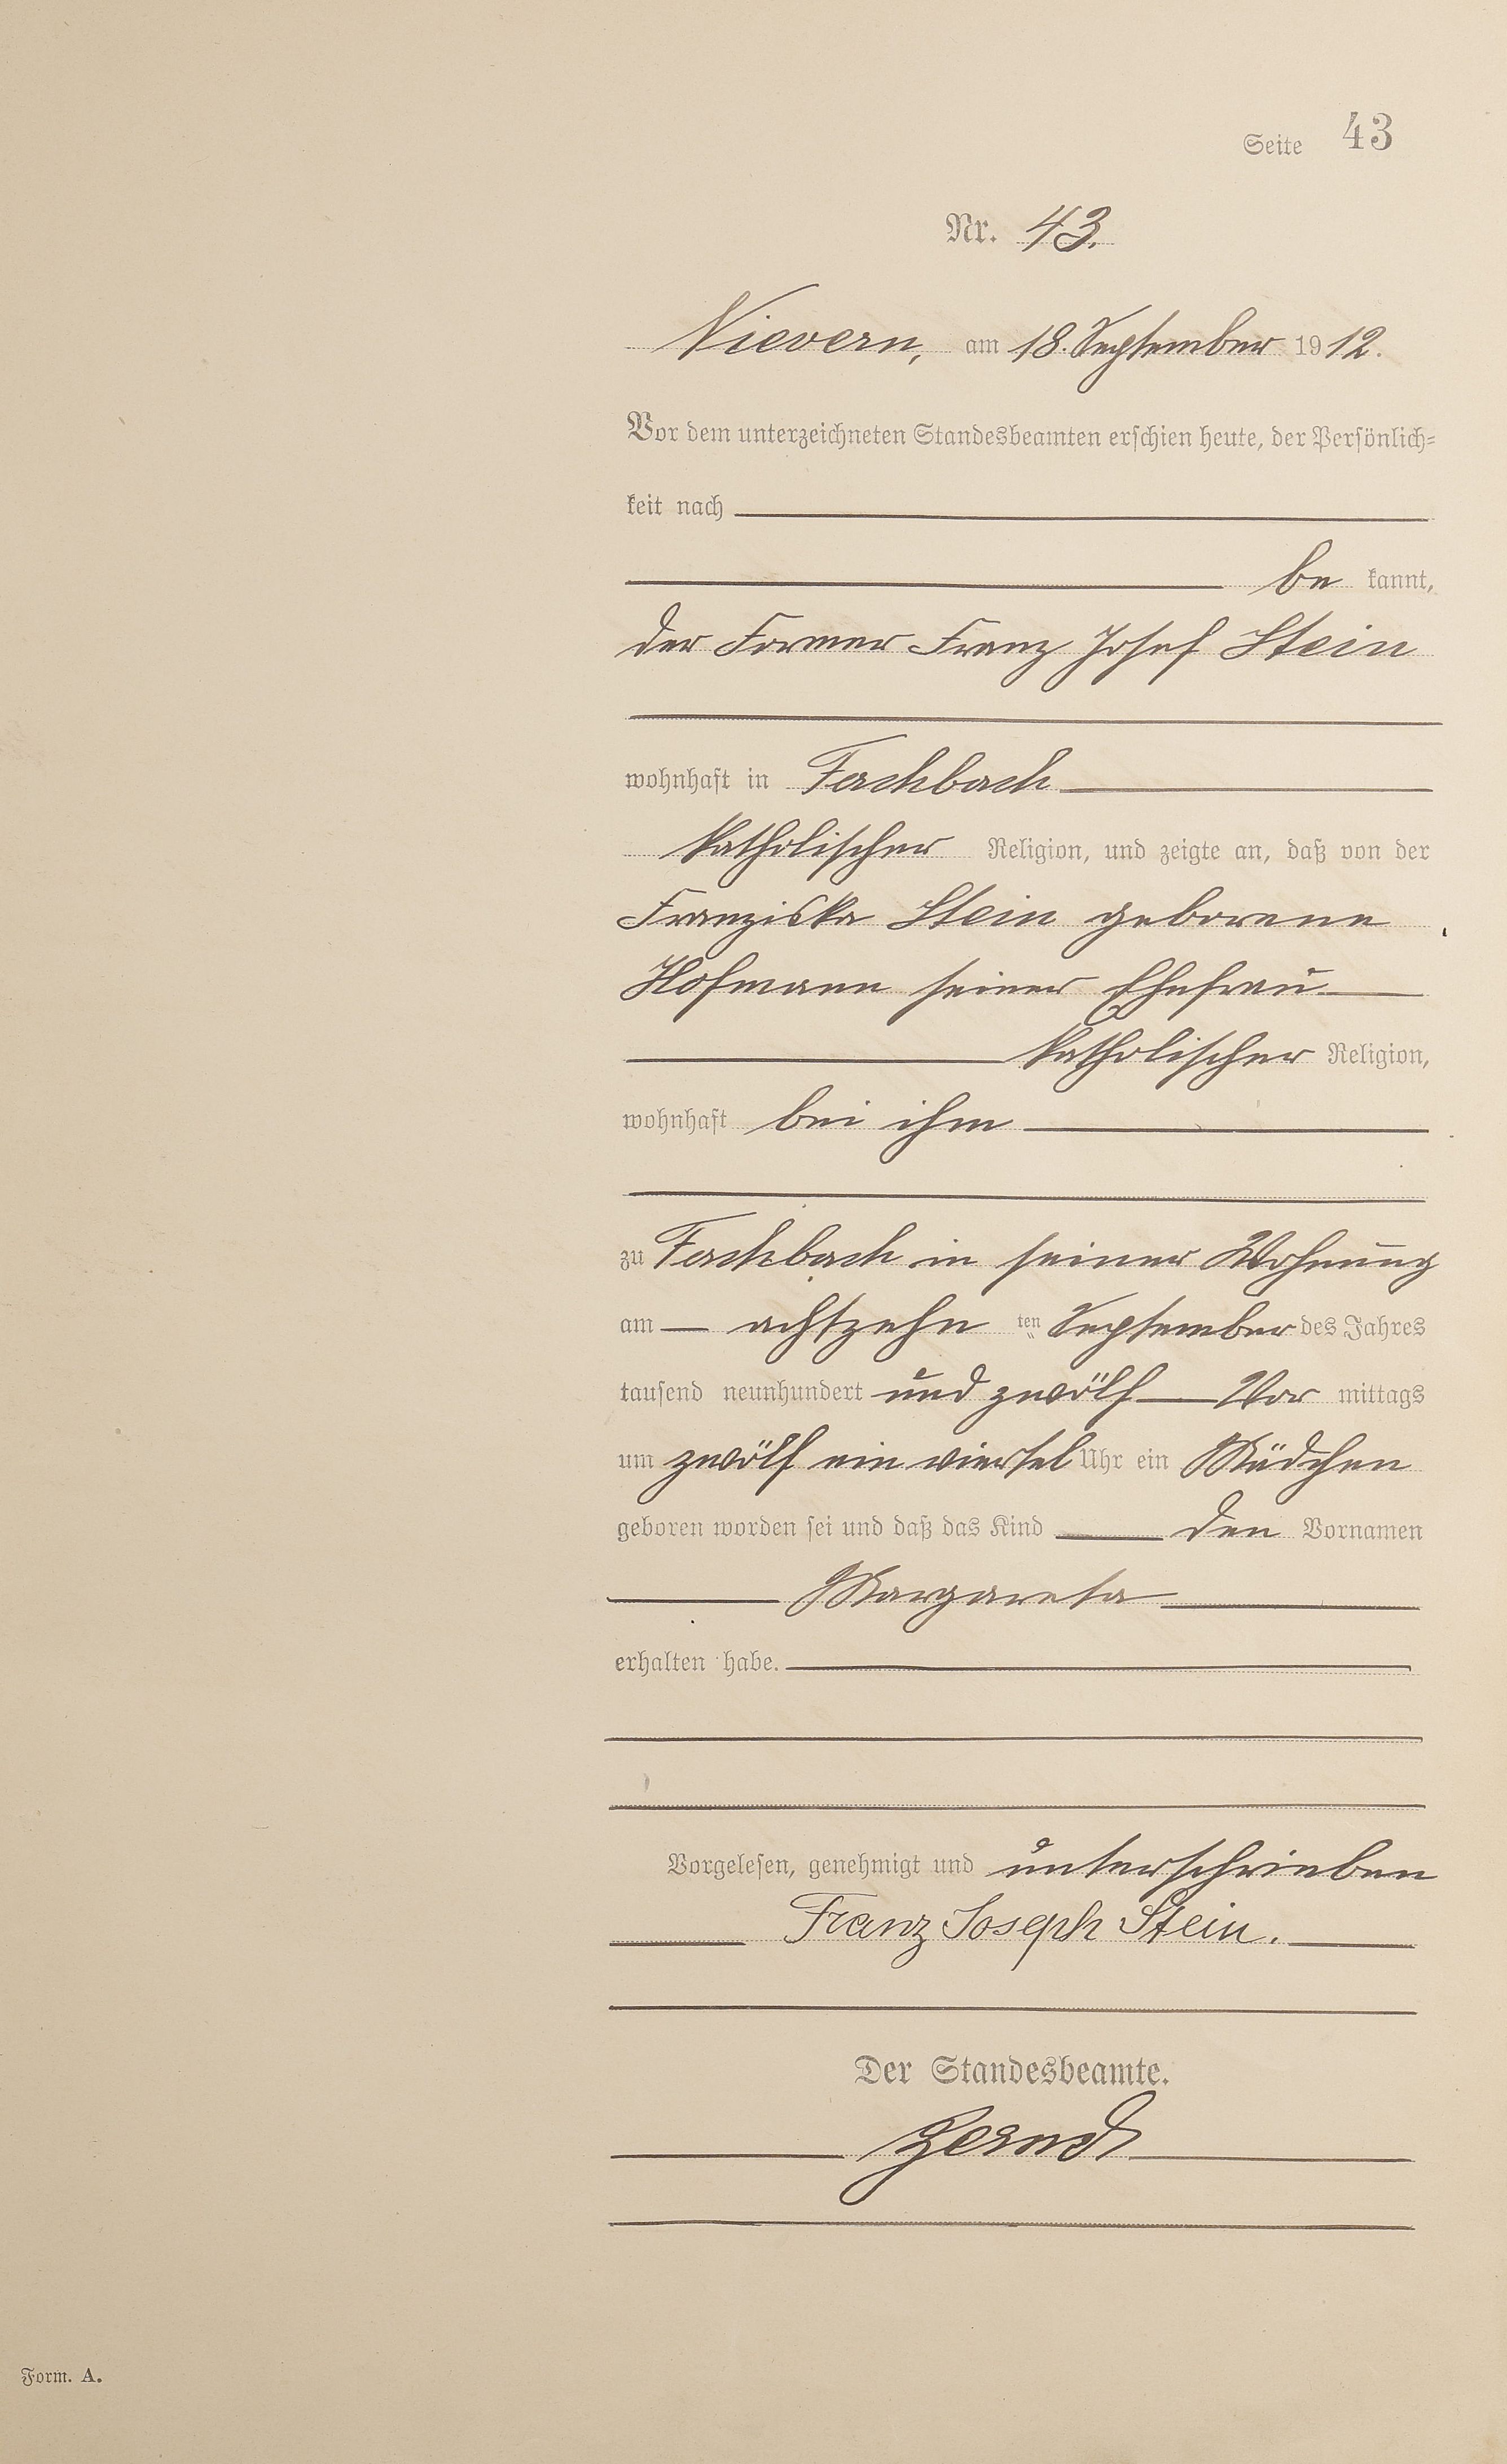 Seite 43
Nr. 43.
Nievern, am 18. September 1912.
Vor dem unterzeichneten Standesbeamten erschien heute, der Persönlich-
keit nach
be kannt,
der Former Franz Josef Stein
wohnhaft in Fachbach
katholischer Religion, und zeigte an, daß von der
Franziska Stein geborene
Hofmann seiner Ehefrau
katholischer Religion,
wohnhaft bei ihm
zu Fachbach in seiner Wohnung
am achtzehn ten September des Jahres
tausend neunhundert und zwölf Vor mittags
um zwölf ein viertel Uhr ein Mädchen
geboren worden sei und daß das Kind den Vornamen
Margareta
erhalten habe.
Vorgelesen, genehmigt und unterschrieben
Franz Joseph Stein.
Der Standesbeamte.
Form. A.